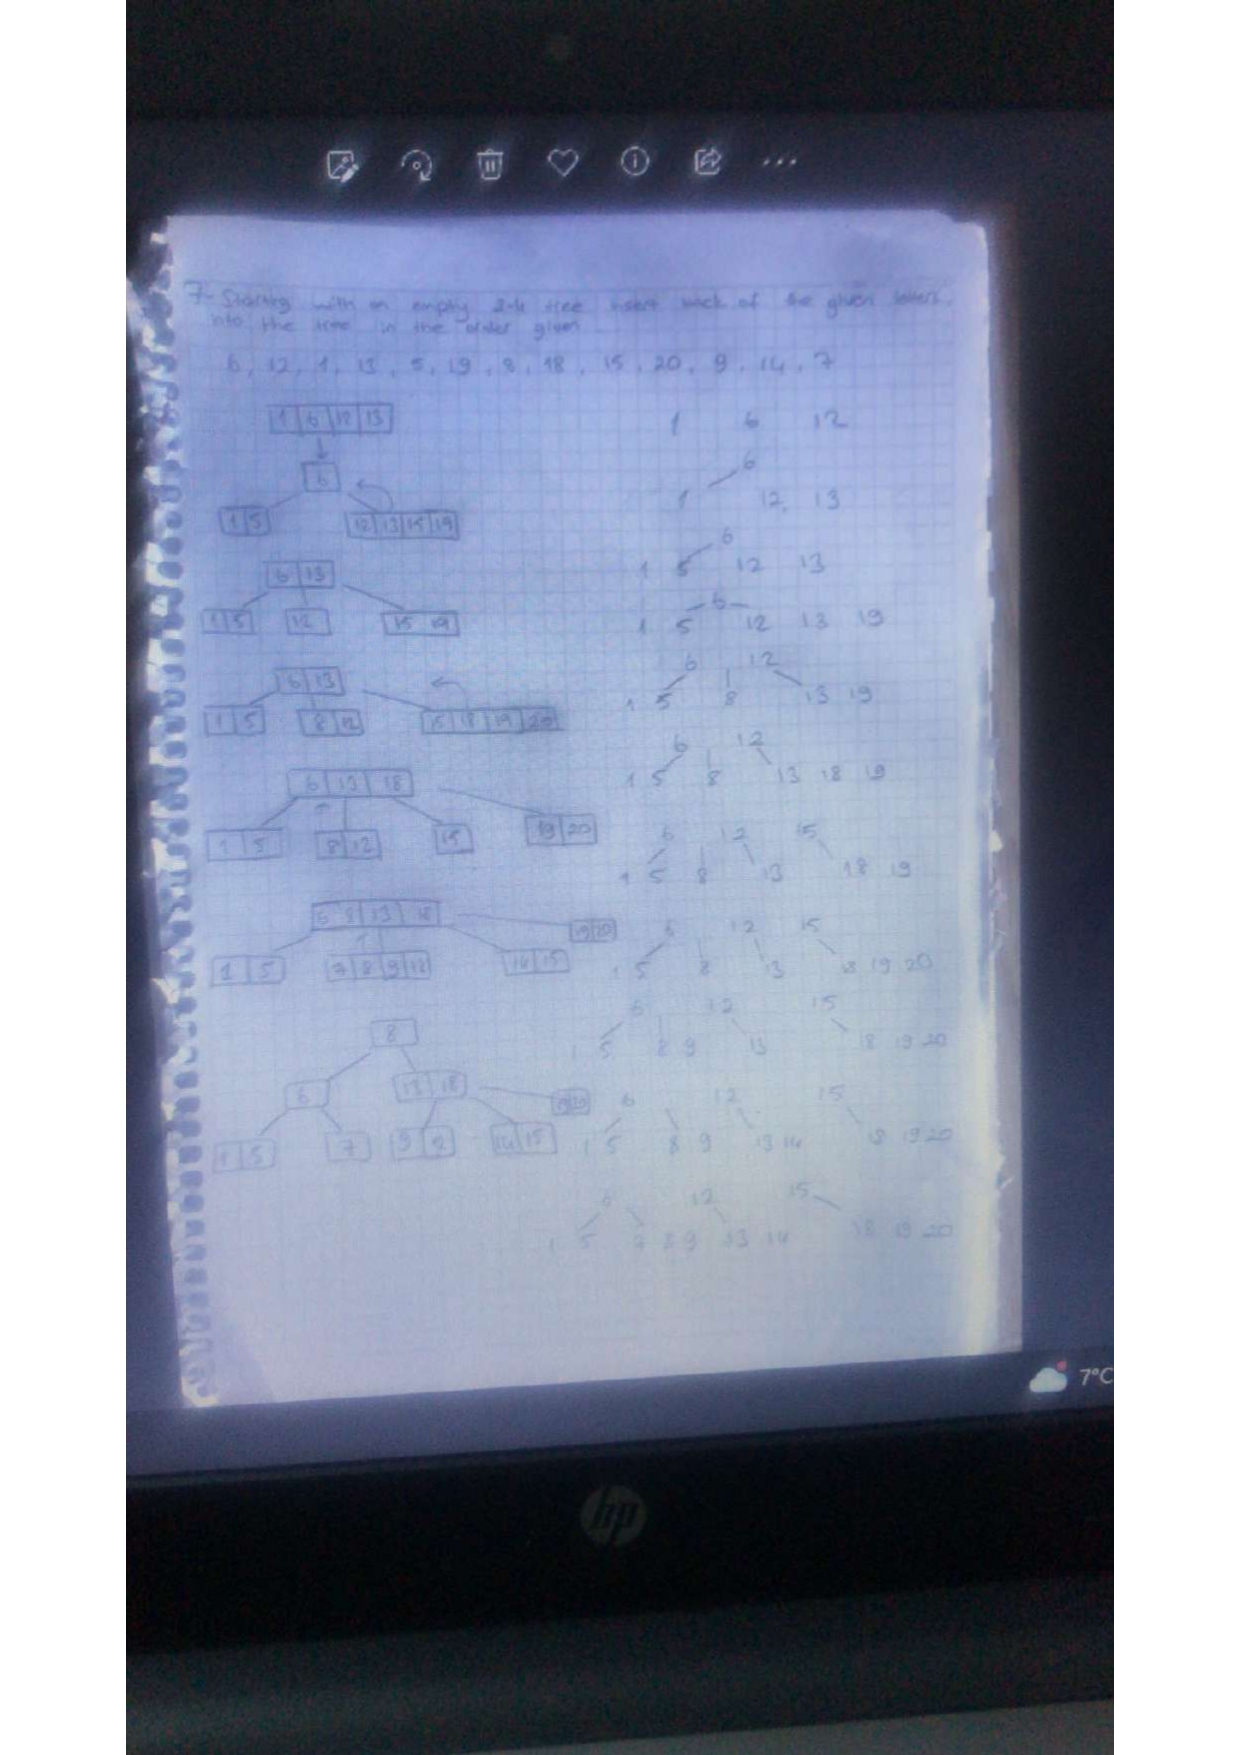 7- Starting with an empty 2-4 tree insert each of the given letters
into the tree in the order given
6, 12, 1, 13, 5, 19, 8, 18, 15, 20, 9, 14, 7
1 6 12 13
6
1 5 12 13 15 19
6 13
1 5 12 15 19
6 13
1 5 8 12 15 18 19 20
6 13 18
1 5 8 12 15 19 20
6 8 13 18
19 20
1 5 7 8 9 12 14 15
8
6 13 18 19 20
1 5 7 9 12 14 15
1 6 12
6
1 12, 13
6
1 5 12 13
6
1 5 12 13 19
6 12
1 5 8 13 19
6 12
1 5 8 13 18 19
6 12 15
1 5 8 13 18 19
6 12 15
1 5 8 13 18 19 20
6 12 15
1 5 8 9 13 18 19 20
6 12 15
1 5 8 9 13 14 18 19 20
6 12 15
1 5 7 8 9 13 14 18 19 20
7°C
hp